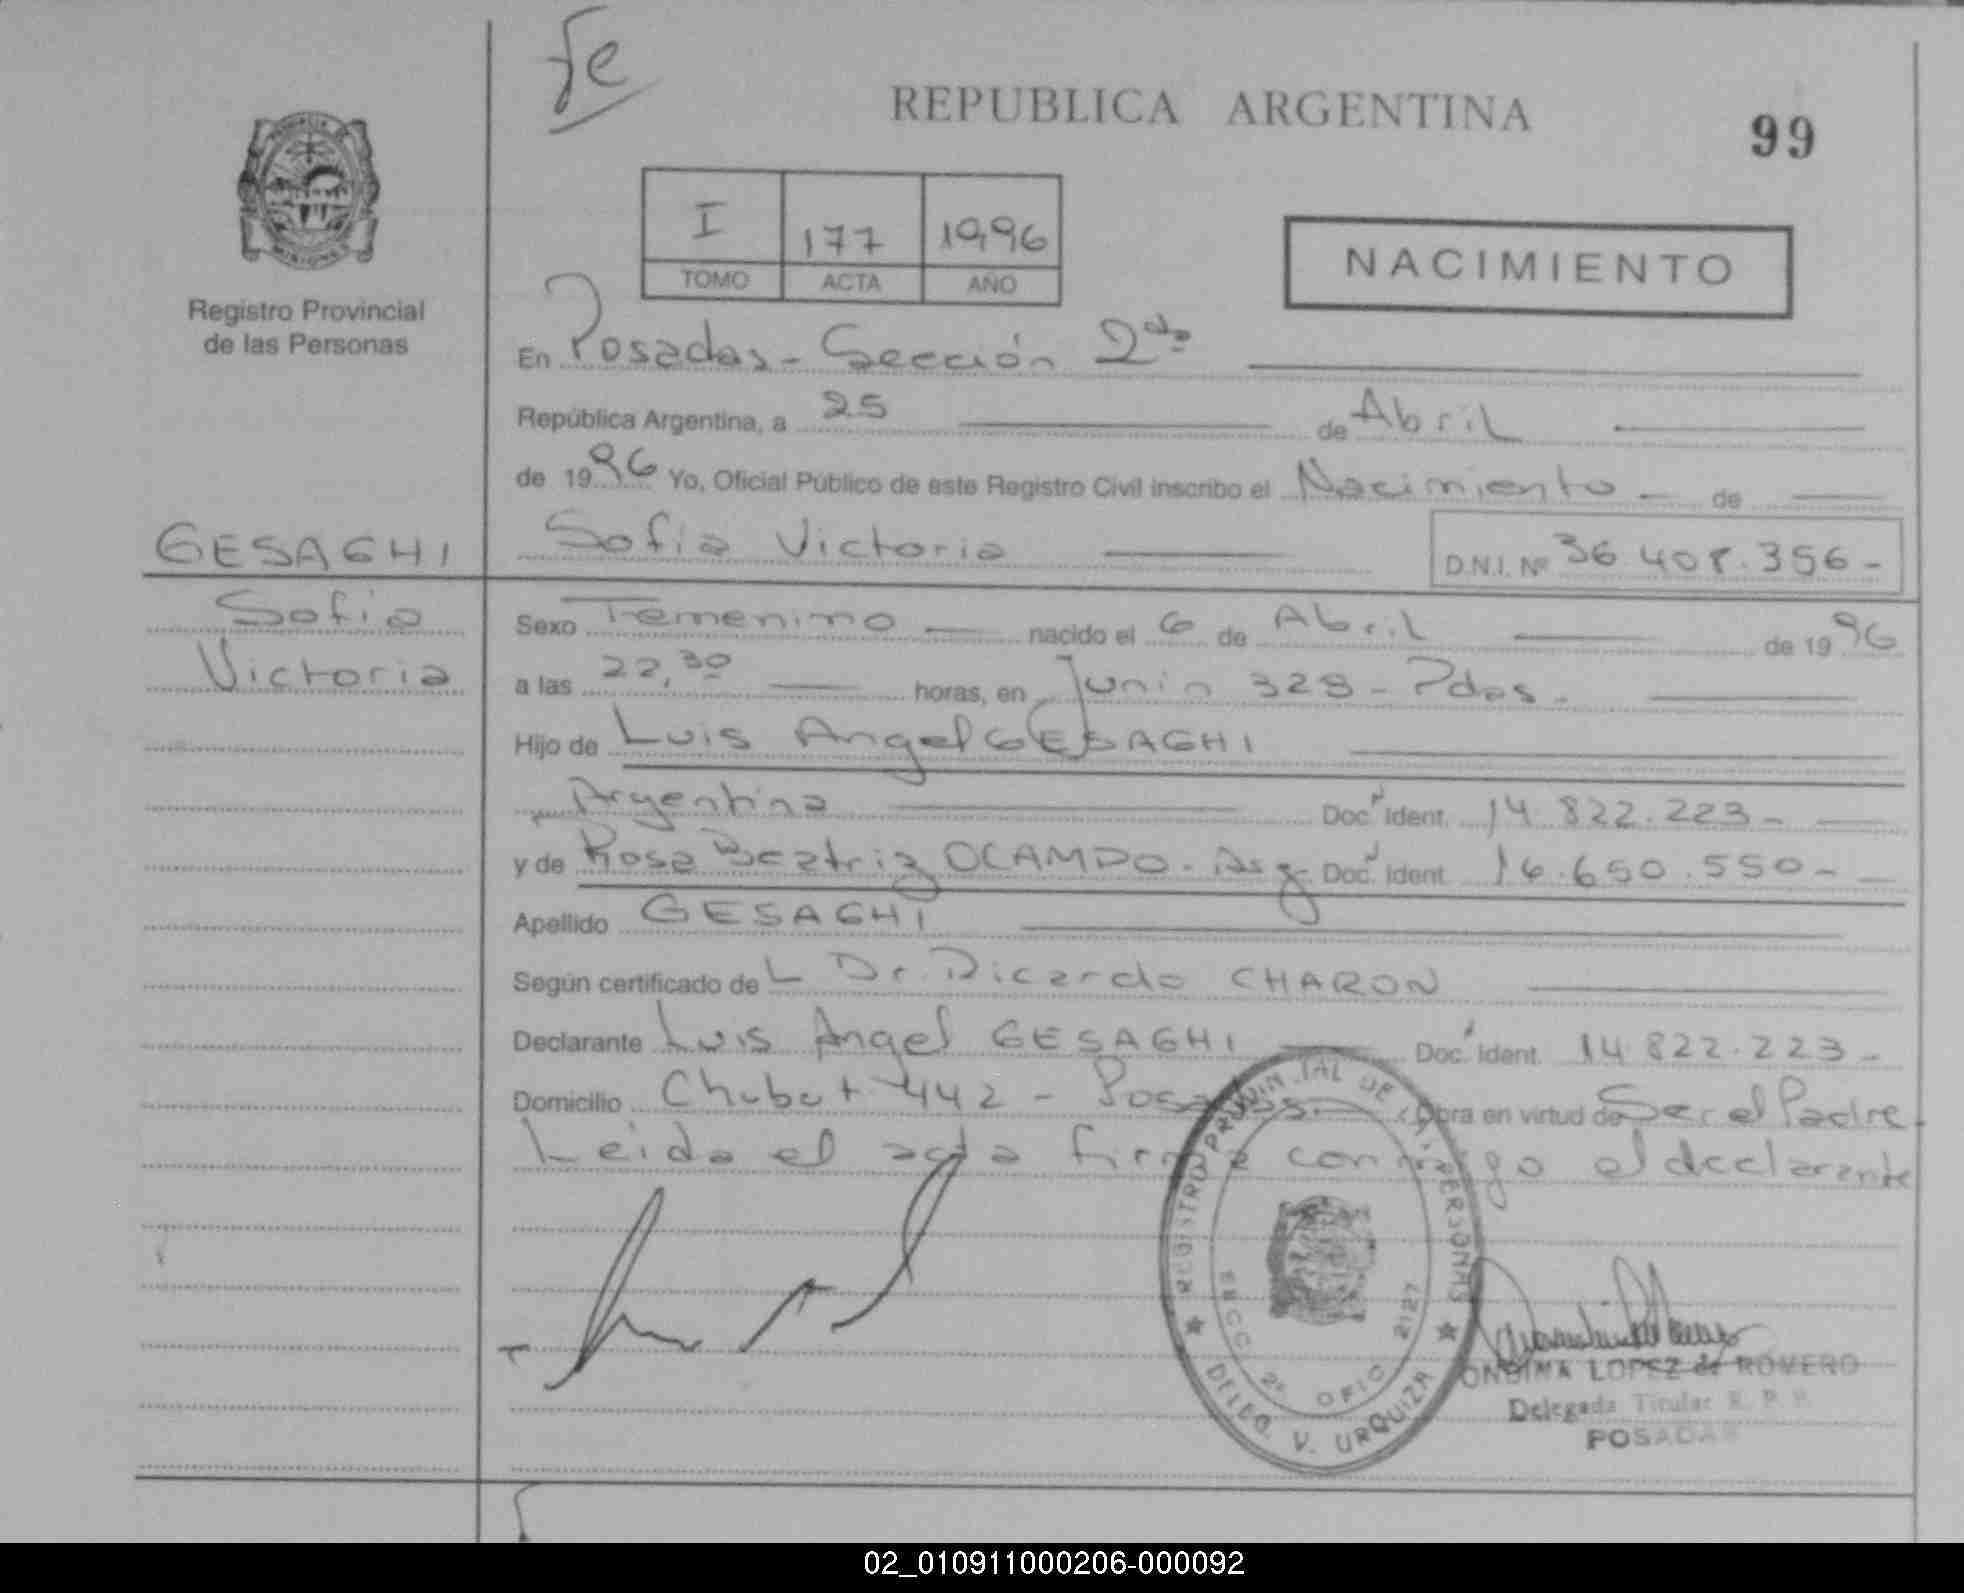 fe
REPUBLICA ARGENTINA
99
PROVINCIA DE
MISIONES
Registro Provincial
de las Personas
I 177 1996
TOMO ACTA AÑO
NACIMIENTO
En Posadas - Sección 2da
República Argentina, a 25 de Abril
de 1996 Yo, Oficial Público de este Registro Civil inscribo el Nacimiento - de
GESAGHI
Sofia Victoria
D.N.I. Nº 36.408.356-
Sofia
Victoria
Sexo Femenino nacido el 6 de Abril de 1996
a las 22,30 horas, en Junin 328 - Pdas.
Hijo de Luis Angel GESAGHI
Argentina Doc. Ident. 14.822.223-
y de Rosa Beatriz OCAMPO - Arg. Doc. Ident. 16.650.550-
Apellido GESAGHI
Según certificado de L Dr. Ricardo CHARON
Declarante Luis Angel GESAGHI Doc. Ident. 14.822.223-
Domicilio Chubut 442 - Posadas. Obra en virtud de Ser el Padre.
Leida el acta firma conmigo el declarante
REGISTRO PROVINCIAL DE LAS PERSONAS
SECC. 2ª OFIC. 2127
DELEG. V. URQUIZA
ONDINA LOPEZ de ROMERO
Delegada Titular R. P. P.
POSADAS
02_010911000206-000092